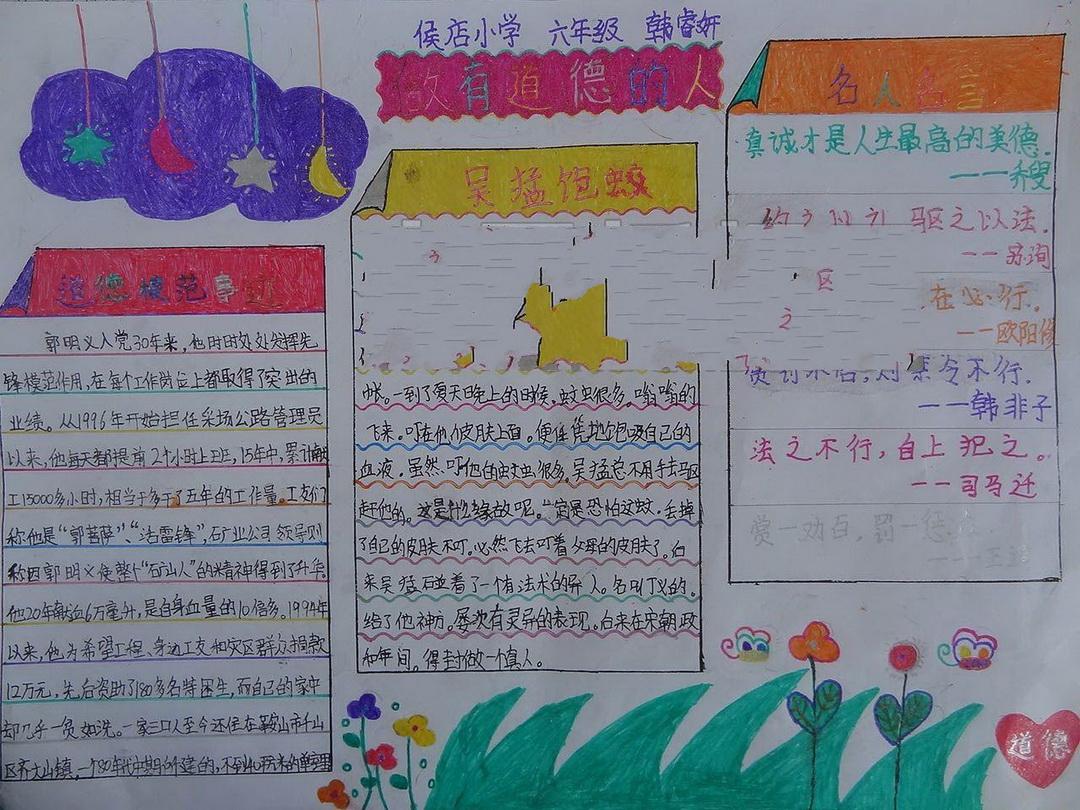 侯店小学 六年级 韩睿妍
做有道德的人
道德模范事迹
郭明义入党30年来,他时时处处发挥先
锋模范作用,在每个工作岗位上都取得了突出的
业绩。从1996年开始担任采场公路管理员
以来,他每天都提前2个小时上班,15年中,累计献
工15000多小时,相当于多干了五年的工作量。工友们
称他是“郭菩萨”、“活雷锋”,矿业公司领导则
称因郭明义使整个“矿山人”的精神得到了升华。
他20年献血6万毫升,是自身血量的10倍多。1994年
以来,他为希望工程、身边工友和灾区群众捐款
12万元,先后资助了180多名特困生,而自己的家中
却几乎一贫如洗。一家三口人至今还住在鞍山市千山
区齐大山镇,一个80年代中期所建的,不到40平米的单室里
吴猛饱蚊
帐。一到了夏天晚上的时候,蚊虫很多。嗡嗡的
飞来。叮在他们皮肤上面。便任凭地饱吸自己的
血液。虽然叮他的蚊虫很多。吴猛总不用手去驱
赶他的。这是什么缘故呢。一定是恐怕这蚊。丢掉
了自己的皮肤不叮。必然飞去叮着父母的皮肤了。后
来吴猛碰着了一个有法术的异人。名叫丁义的。
给了他神方。屡次有灵异的表现。后来在宋朝政
和年间。得封做一个真人。
名人名言
真诚才是人生最高的美德.
——乔叟
驱之以法.
——苏洵
区
之
在必行.
——欧阳修
则禁令不行.
——韩非子
法之不行,自上犯之。
——司马迁
赏一劝百,罚一惩
道德